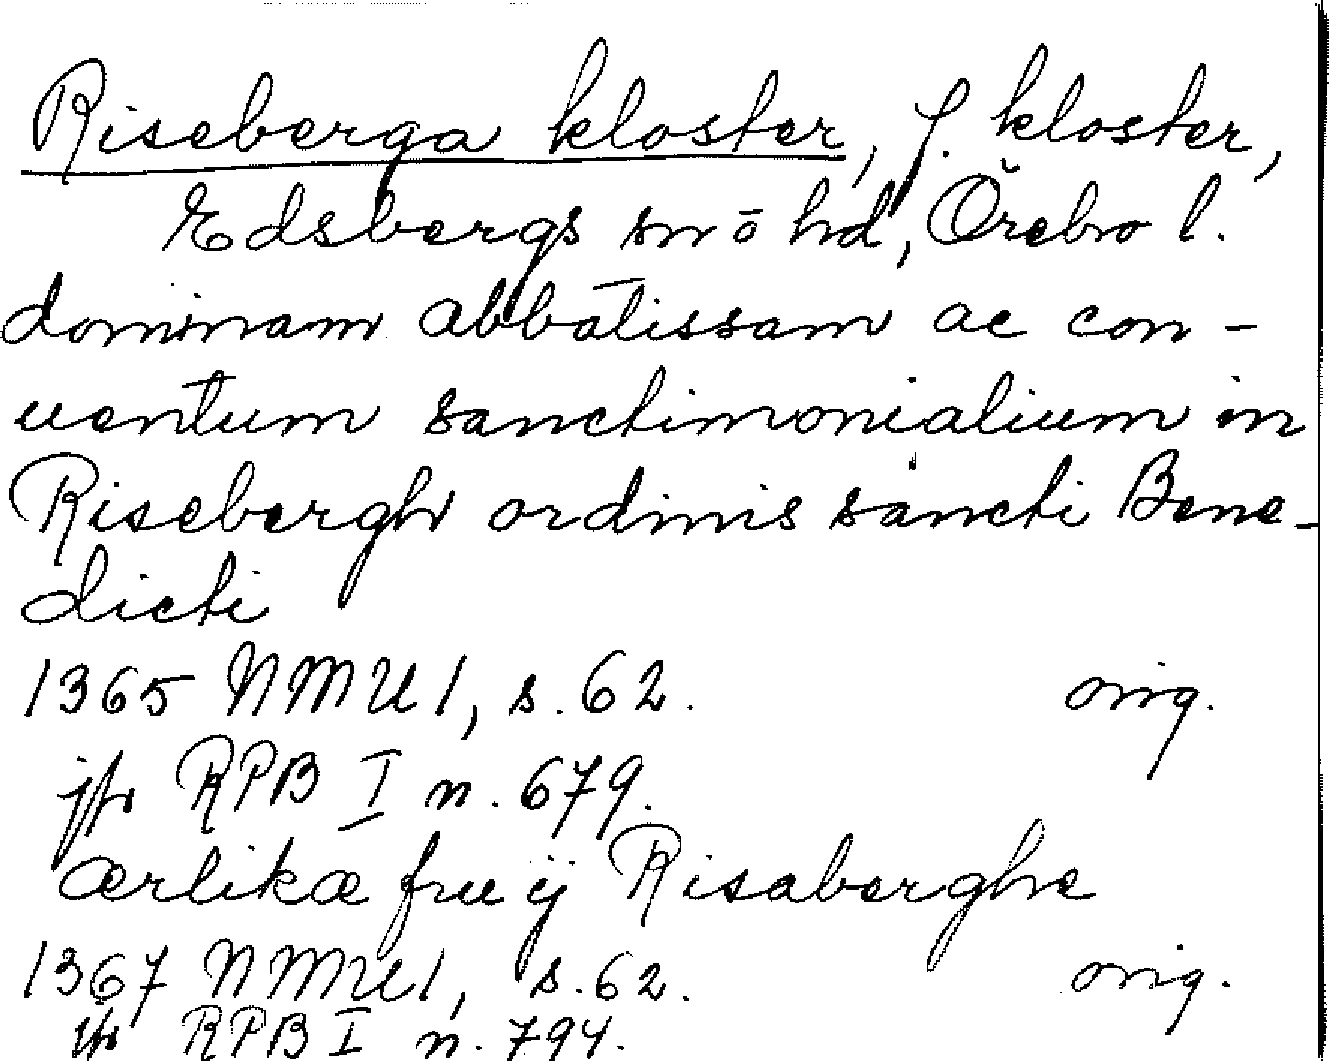 Riseberga kloster, f. kloster,
Edsbergs sn o hd, Örebro l.
dominam abbatissam ac con-
uentum sanctimonialium in
Risebergh ordinis sancti Bene-
dicti
1365 NMU 1, s. 62. orig.
jfr RPB I n. 679.
ærlikæ frue ij Risaberghe
1367 NMU 1, s. 62. orig.
jfr RPB I n. 794.